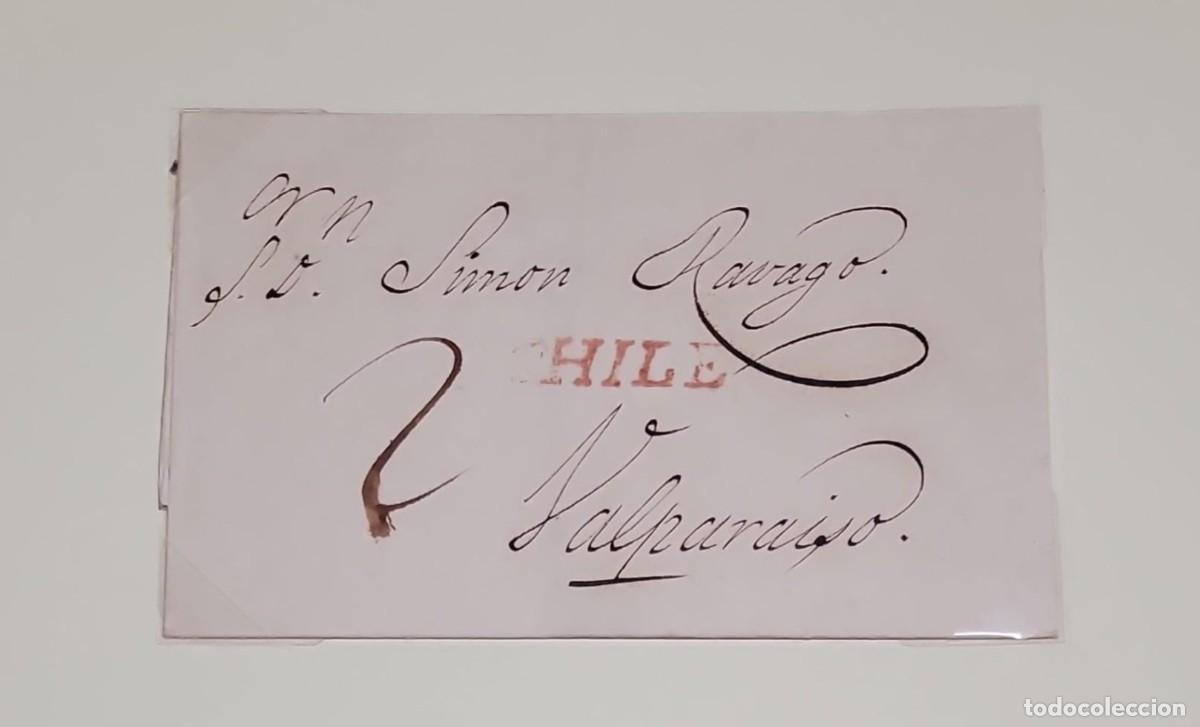 S. D. Simon Ravago.
CHILE
2
Valparaiso.
todocoleccion